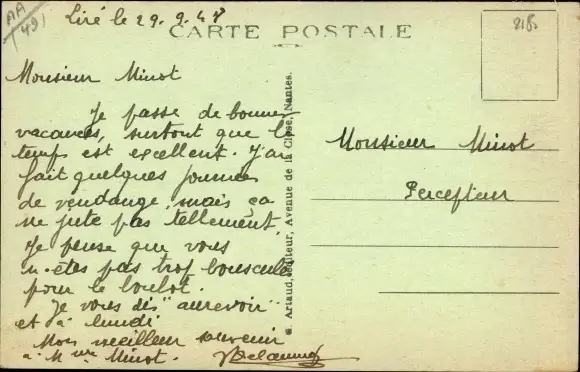 AA
491
Liré le 29.9.48
CARTE POSTALE
Monsieur Minot
Je passe de bonnes
vacances, surtout que le
temps est excellent. J'ai
fait quelques journées
de vendange, mais ça
ne jute pas tellement.
Je pense que vous
n'êtes pas trop bousculé
pour le boulot.
Je vous dis "aurevoir"
et à lundi.
Mon meilleur souvenir
à Mme Minot.
Artaud, éditeur, Avenue de la Close, Nantes.
Monsieur Minot
Percepteur